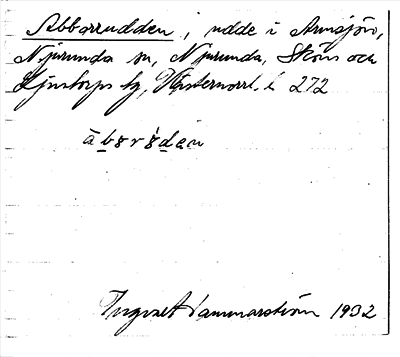 Abborrudden, udde i Armsjön,
Njurunda sn, Njurunda, Sköns och
Ljustorps tg, Västernorrl. l. 272
Ingvar Hammarström 1932